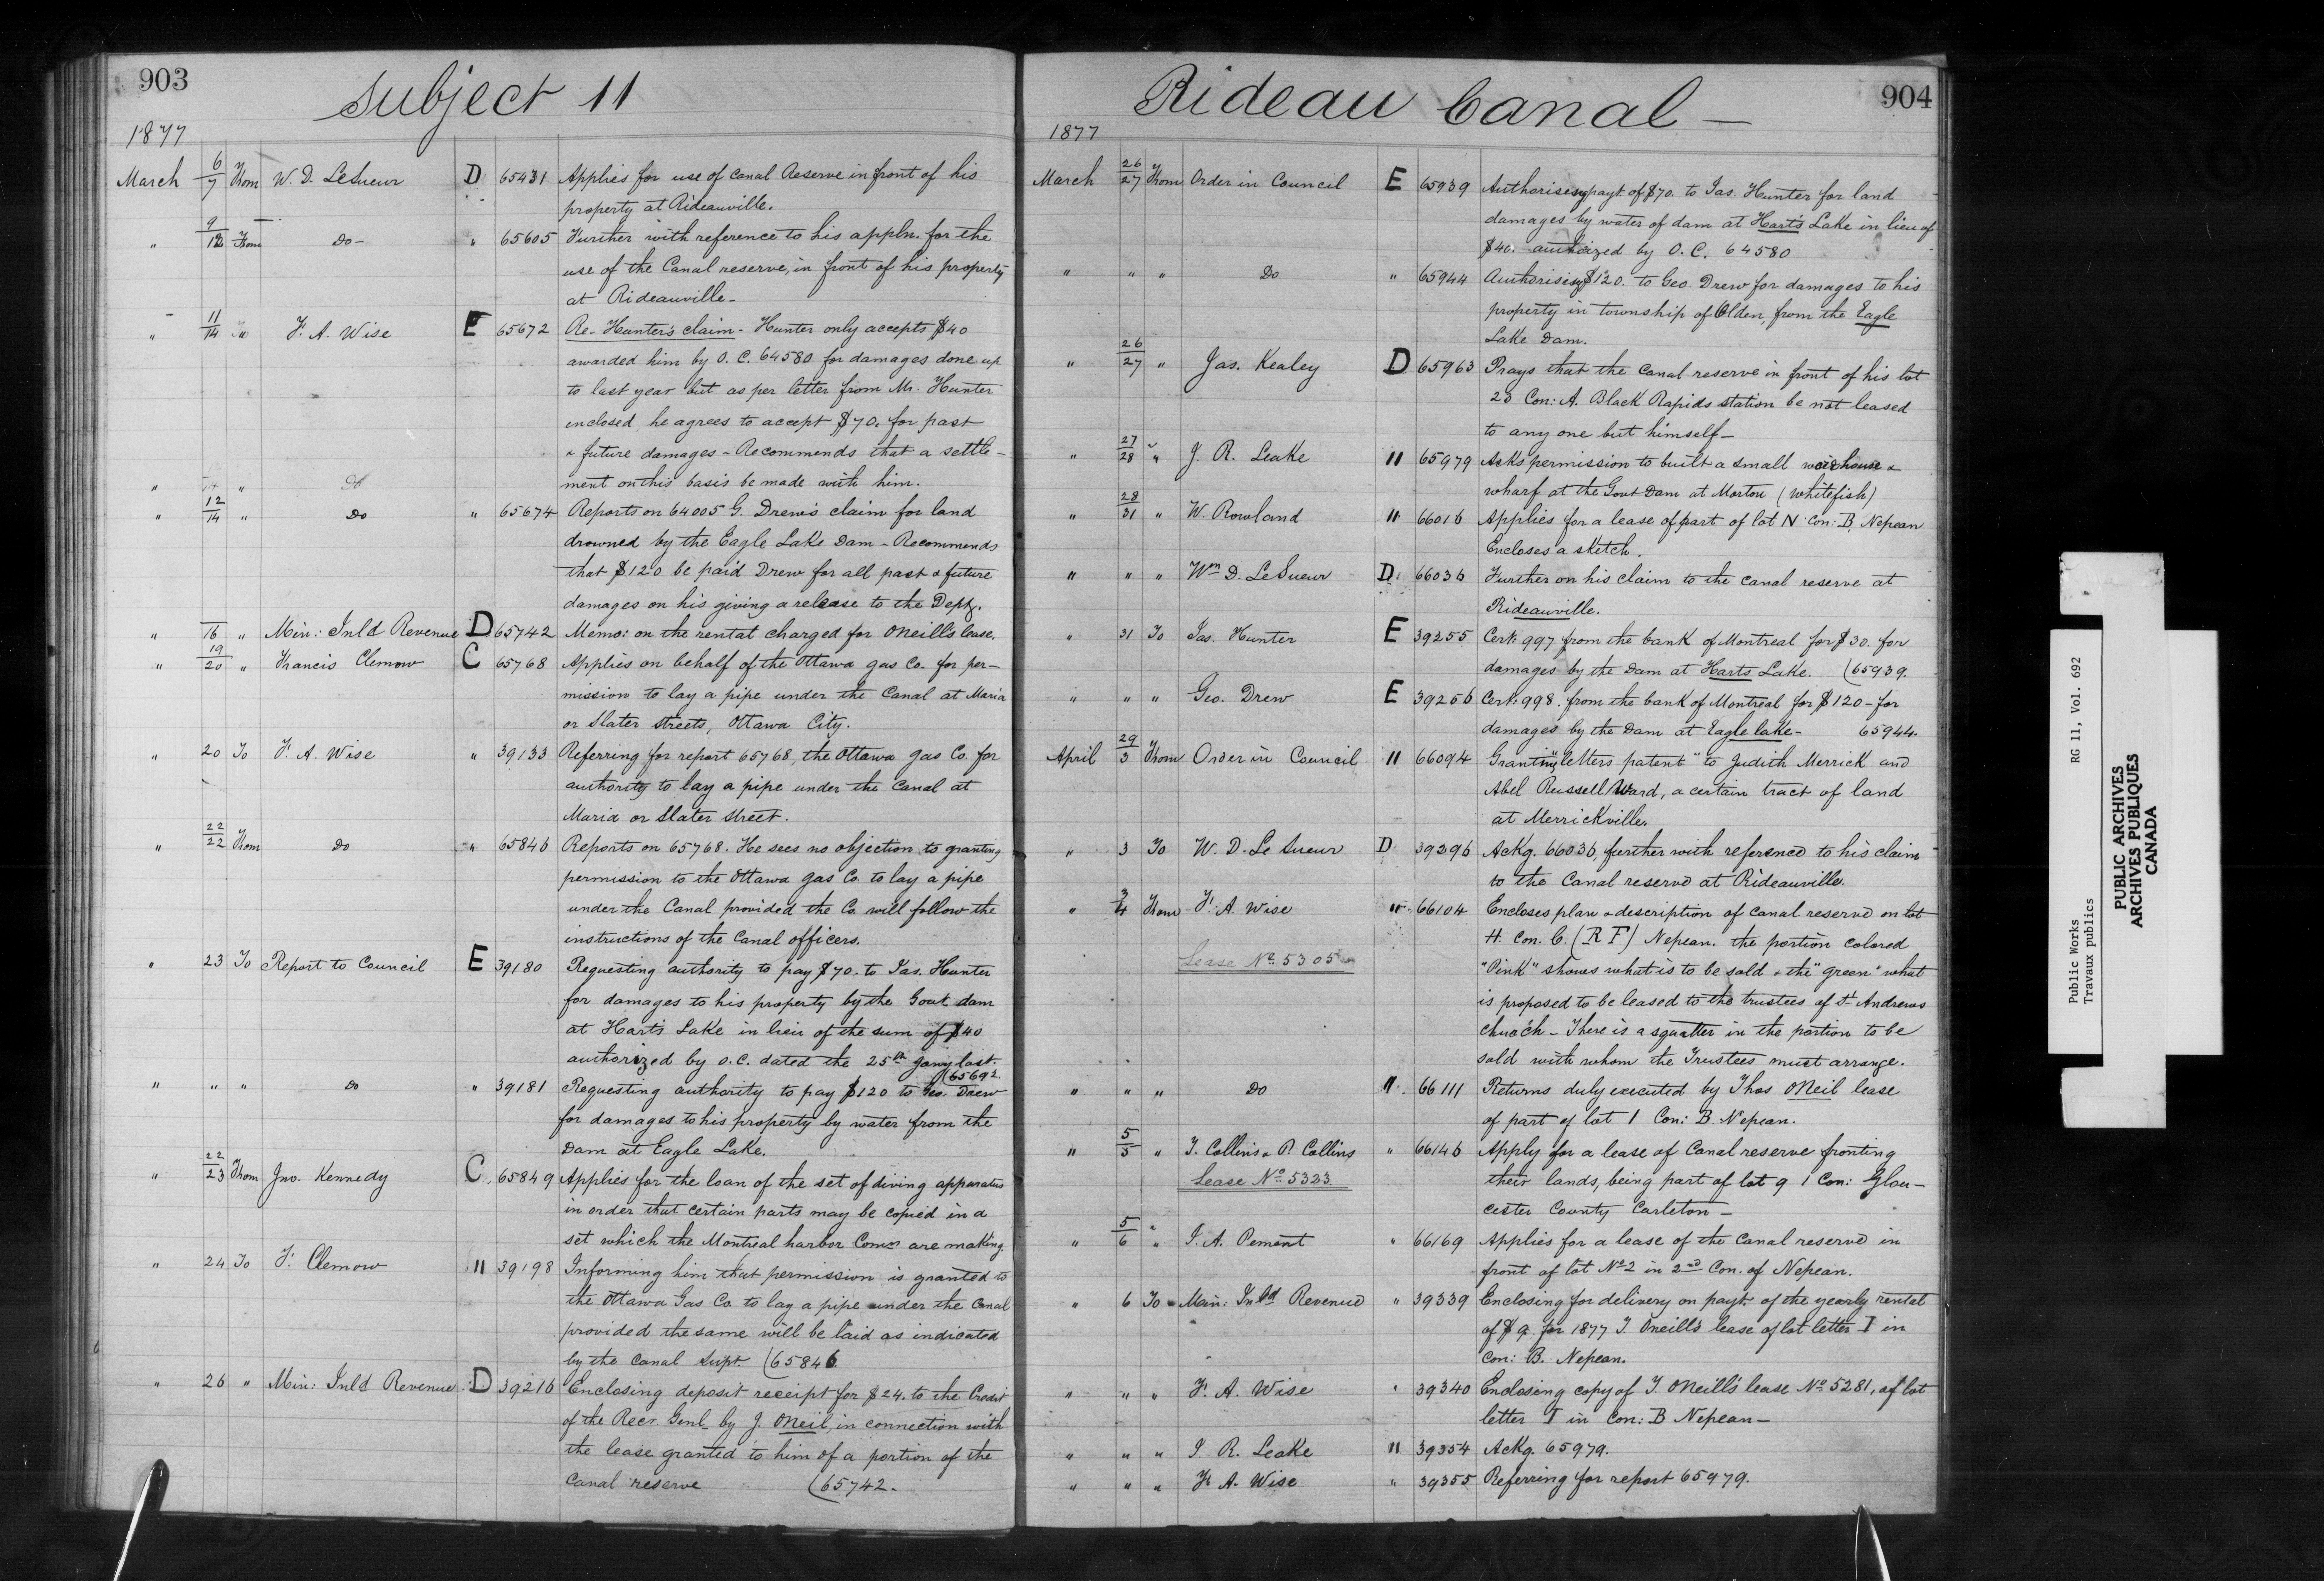 903
Subject 11
1877
March 6/7 From W. D. LeSueur D 65431 Applies for use of Canal Reserve in front of his
property at Rideauville.
" 9/12 From Do- " 65605 Further with reference to his appln. for the
use of the Canal reserve, in front of his property
at Rideauville-
" 11/14 F. A. Wise E 65672 Re- Hunter's claim- Hunter only accepts $40
awarded him by O. C. 64580 for damages done up
to last year but as per letter from Mr. Hunter
inclosed he agrees to accept $70. for past
& future damages - Recommends that a settle-
ment on this basis be made with him.
" " Do
" 12/14 Do " 65674 Reports on 64005 G. Drew's claim for land
drowned by the Eagle Lake Dam - Recommends
that $120 be paid Drew for all past & future
damages on his giving a release to the Dept.
" 16 " Min: Inld Revenue D 65742 Memo: on the rental charged for ONeill's lease.
" 19/20 " Francis Clemow C 65768 Applies on behalf of the Ottawa gas Co. for per-
mission to lay a pipe under the Canal at Maria
or Slater streets, Ottawa City.
" 20 To F. A. Wise " 39133 Referring for report 65768, the Ottawa gas Co. for
authority to lay a pipe under the Canal at
Maria or Slater street.
" 22/22 From Do " 65846 Reports on 65768. He sees no objection to granting
permission to the Ottawa gas Co. to lay a pipe
under the Canal provided the Co. will follow the
instructions of the Canal officers.
" 23 To Report to Council E 39180 Requesting authority to pay $70. to Jas. Hunter
for damages to his property by the Govt. dam
at Hart's Lake in lieu of the sum of $40
authorized by O. C. dated the 25th Jany last.
(65692.
" " " Do " 39181 Requesting authority to pay $120 to Geo. Drew
for damages to his property by water from the
Dam at Eagle Lake.
" 22/23 From Jno. Kennedy C 65849 Applies for the loan of the set of diving apparatus
in order that certain parts may be copied in a
set which the Montreal harbor Comrs are making.
" 24 To F. Clemow " 39198 Informing him that permission is granted to
the Ottawa Gas Co. to lay a pipe under the Canal
provided the same will be laid as indicated
by the Canal Supt. (65846
" 26 " Min: Inld Revenue D 39216 Enclosing deposit receipt for $24. to the Credit
of the Recr. Genl. by J. ONeil, in connection with
the lease granted to him of a portion of the
Canal reserve (65742.
Rideau Canal -
904
1877
March 26/27 From Order in Council E 65939 Authorising payt. of $70. to Jas. Hunter for land
damages by water of dam at Hart's Lake in lieu of
$40. authorized by O. C. 64580
" " " Do " 65944 Authorising $120. to Geo. Drew for damages to his
property in township of Olden, from the Eagle
Lake Dam.
" 26/27 " Jas. Kealey D 65963 Prays that the Canal reserve in front of his lot
23 Con: A. Black Rapids station be not leased
to any one but himself-
" 27/28 " J. R. Leake " 65979 Asks permission to built a small warehouse &
wharf at the Govt Dam at Morton (Whitefish)
" 28/31 " W. Rowland " 66016 Applies for a lease of part of lot N Con: B, Nepean
Encloses a sketch.
" " " Wm D. LeSueur D 66036 Further on his claim to the canal reserve at
Rideauville.
" 31 To Jas. Hunter E 39255 Cert: 997 from the bank of Montreal for $30. for
damages by the Dam at Harts Lake. (65939.
" " " Geo. Drew E 39256 Cert: 998. from the bank of Montreal for $120- for
damages by the Dam at Eagle lake- 65944.
April 29/3 From Order in Council " 66094 Granting "letters patent" to Judith Merrick and
Abel Russell Ward, a certain tract of land
at Merrickville.
" 3 To W. D. Le Sueur D 39296 Ackg. 66036, further with reference to his claim
to the Canal reserve at Rideauville.
" 3/4 From F. A. Wise " 66104 Encloses plan & description of Canal reserve on lot
H. Con. C. (R F) Nepean. the portion colored
Lease No. 5305
"Pink" shows what is to be sold & the "green" what
is proposed to be leased to the trustees of St Andrews
church - There is a squatter in the portion to be
sold with whom the Trustees must arrange.
" " " Do " 66111 Returns duly executed by Thos ONeil lease
of part of lot I Con: B. Nepean.
" 5/5 " T. Collins & P. Collins " 66146 Apply for a lease of Canal reserve fronting
Lease No 5323 their lands, being part of lot 9 1 Con: Glou-
cester County Carleton -
" 5/6 " J. A. Pement " 66169 Applies for a lease of the Canal reserve in
front of lot No 2 in 2nd Con. of Nepean.
" 6 To Min: Inld Revenue " 39339 Enclosing for delivery on payt. of the yearly rental
of $9 for 1877 T. Oneill's lease of lot letter I in
Con: B. Nepean.
" " " F. A. Wise " 39340 Enclosing copy of T. ONeill's lease No 5281, of lot
letter I in Con: B Nepean-
" " " J. R. Leake " 39354 Ackg. 65979.
" " " F. A. Wise " 39355 Referring for report 65979.
Public Works RG 11, Vol. 692
Travaux publics
PUBLIC ARCHIVES
ARCHIVES PUBLIQUES
CANADA